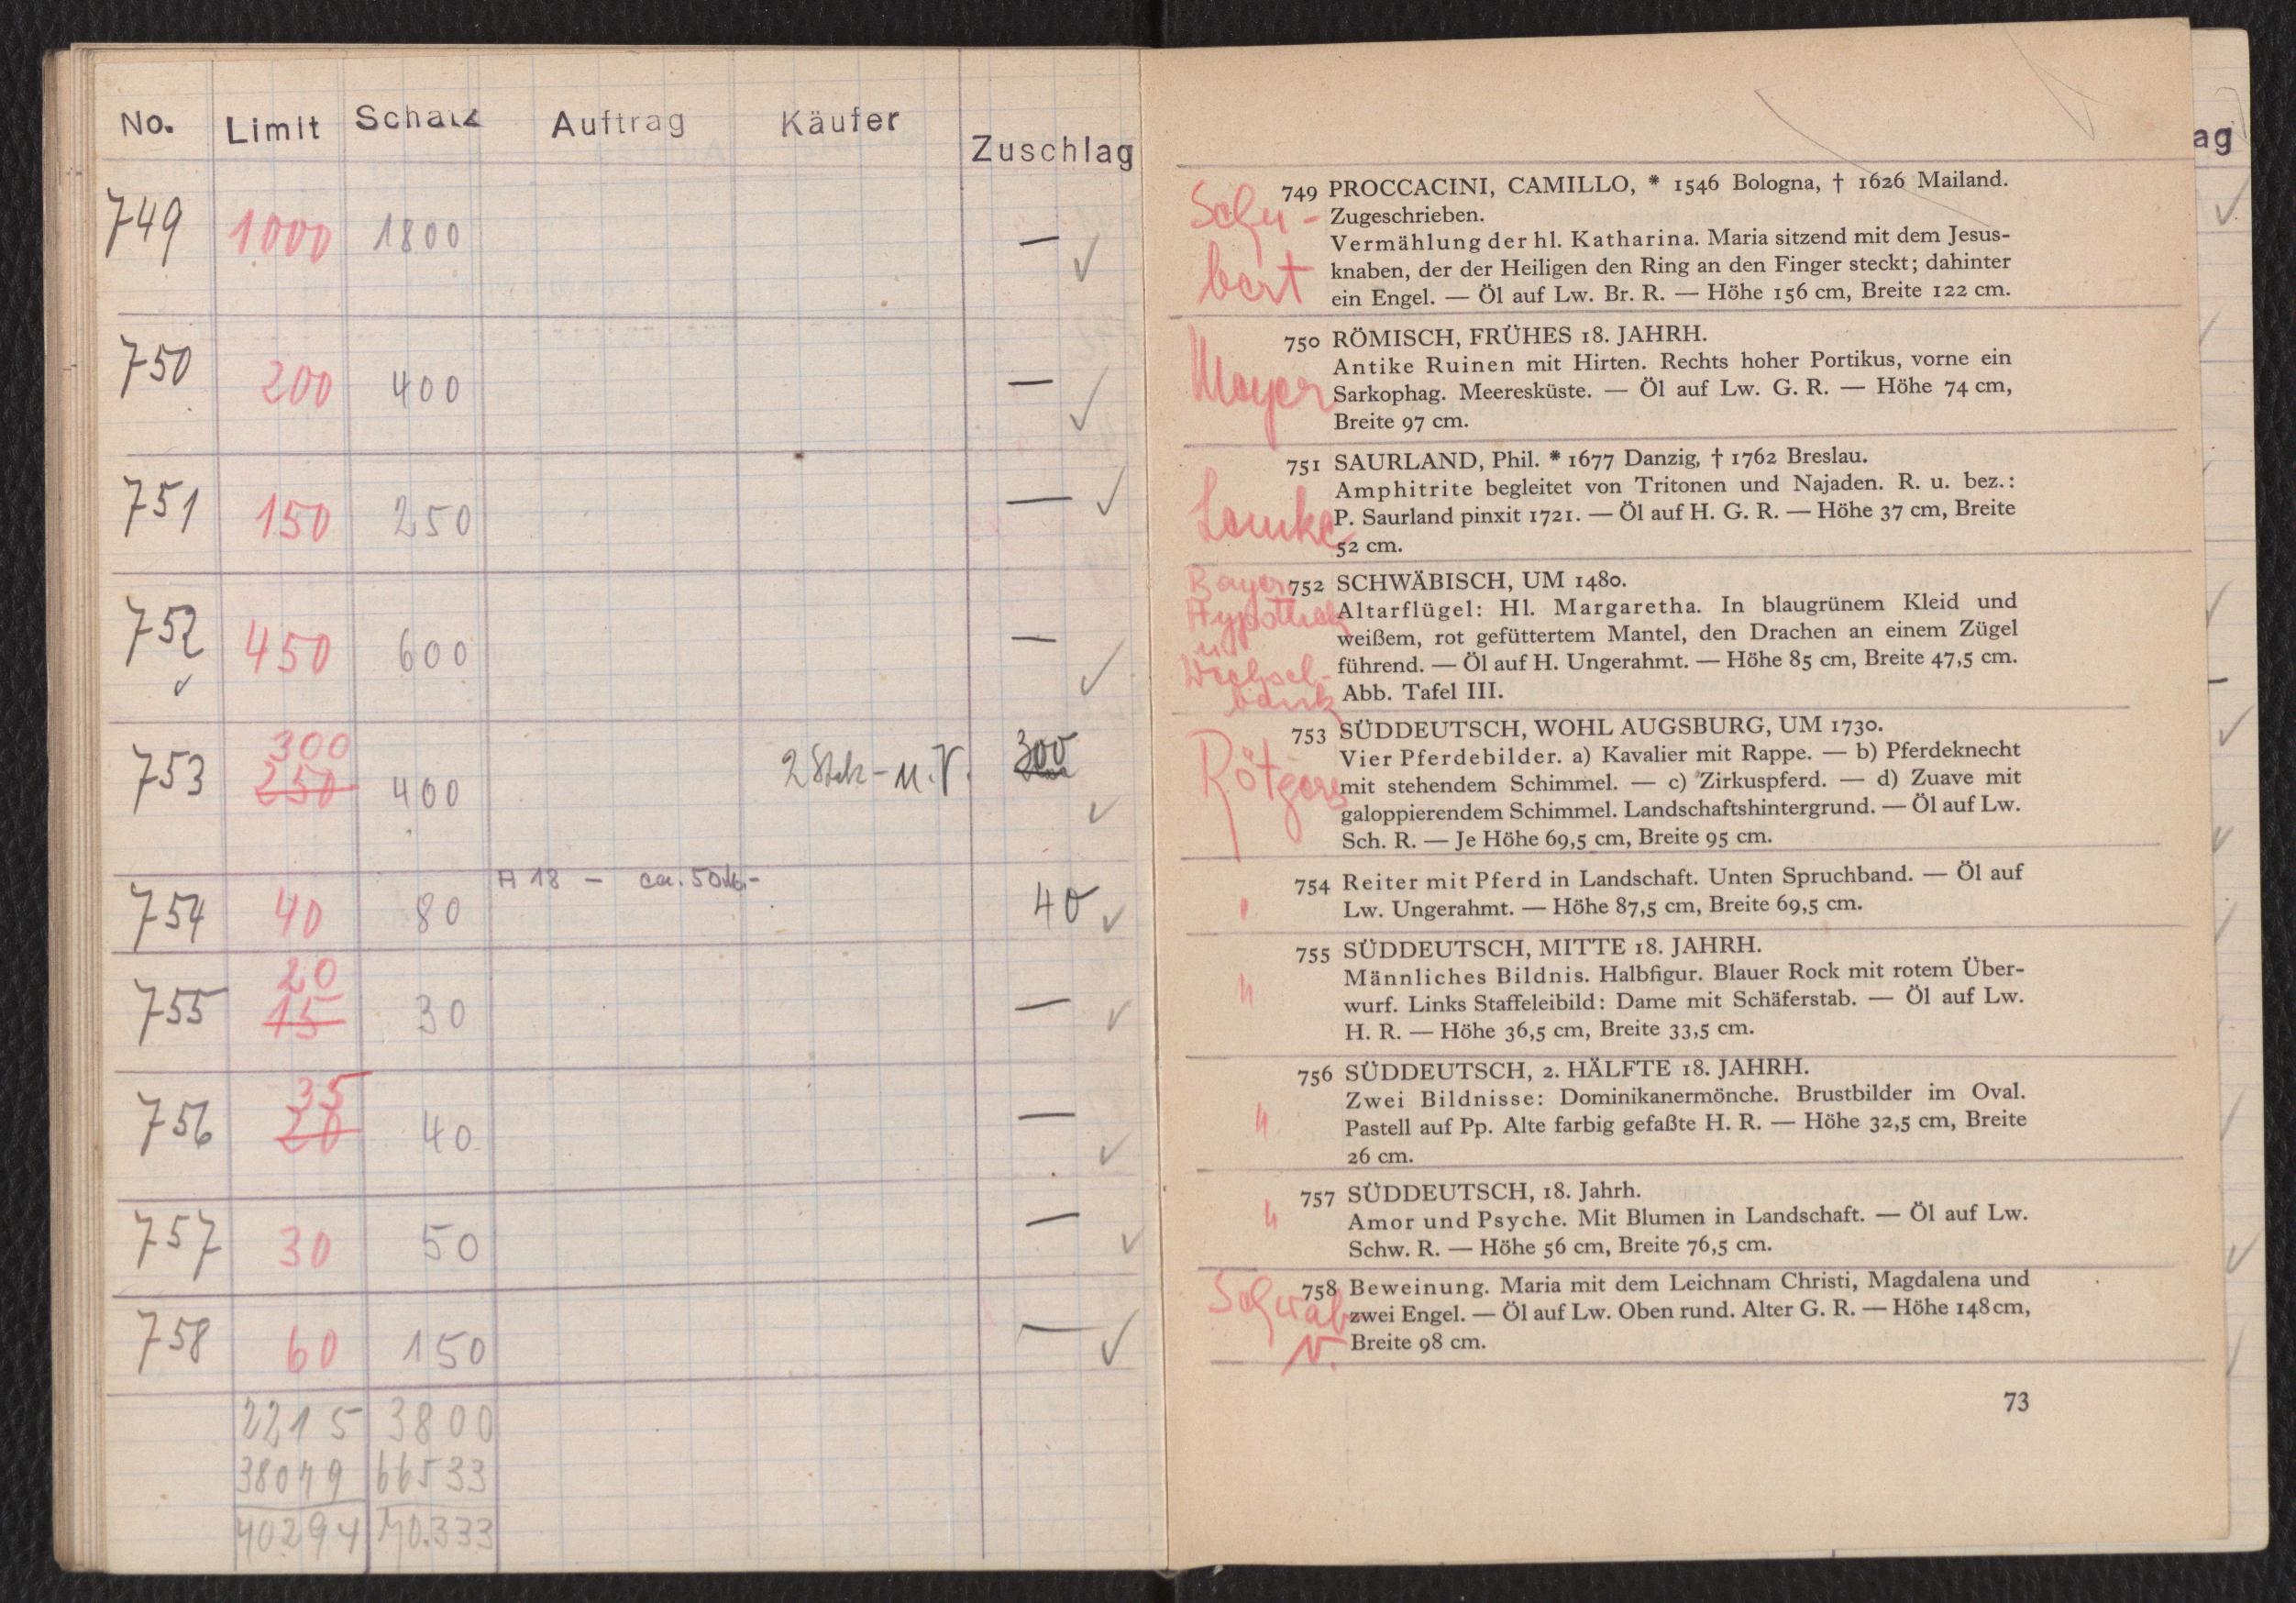 No. Limit Schatz Auftrag Käufer Zuschlag
749 1000 1800 — ✓
750 200 400 — ✓
751 150 250 — ✓
752 ✓ 450 600 — ✓
300
753 250 400 2 Stck - u. V. 300 ✓
A 18 — ca. 50 M.-
754 40 80 40 ✓
20
755 15 30 — ✓
35
756 20 40 — ✓
757 30 50 — ✓
758 60 150 — ✓
2215 3800
38079 66533
40294 70.333
749 PROCCACINI, CAMILLO, * 1546 Bologna, † 1626 Mailand.
Schu- Zugeschrieben.
Vermählung der hl. Katharina. Maria sitzend mit dem Jesus-
bert knaben, der der Heiligen den Ring an den Finger steckt; dahinter
ein Engel. — Öl auf Lw. Br. R. — Höhe 156 cm, Breite 122 cm.
750 RÖMISCH, FRÜHES 18. JAHRH.
Antike Ruinen mit Hirten. Rechts hoher Portikus, vorne ein
Mayer Sarkophag. Meeresküste. — Öl auf Lw. G. R. — Höhe 74 cm,
Breite 97 cm.
751 SAURLAND, Phil. * 1677 Danzig, † 1762 Breslau.
Amphitrite begleitet von Tritonen und Najaden. R. u. bez.:
P. Saurland pinxit 1721. — Öl auf H. G. R. — Höhe 37 cm, Breite
52 cm.
Bayer. 752 SCHWÄBISCH, UM 1480.
Hypothek Altarflügel: Hl. Margaretha. In blaugrünem Kleid und
u. weißem, rot gefüttertem Mantel, den Drachen an einem Zügel
Wechsel- führend. — Öl auf H. Ungerahmt. — Höhe 85 cm, Breite 47,5 cm.
bank Abb. Tafel III.
753 SÜDDEUTSCH, WOHL AUGSBURG, UM 1730.
Vier Pferdebilder. a) Kavalier mit Rappe. — b) Pferdeknecht
Rötgers mit stehendem Schimmel. — c) Zirkuspferd. — d) Zuave mit
galoppierendem Schimmel. Landschaftshintergrund. — Öl auf Lw.
Sch. R. — Je Höhe 69,5 cm, Breite 95 cm.
754 Reiter mit Pferd in Landschaft. Unten Spruchband. — Öl auf
Lw. Ungerahmt. — Höhe 87,5 cm, Breite 69,5 cm.
755 SÜDDEUTSCH, MITTE 18. JAHRH.
Männliches Bildnis. Halbfigur. Blauer Rock mit rotem Über-
" wurf. Links Staffeleibild: Dame mit Schäferstab. — Öl auf Lw.
H. R. — Höhe 36,5 cm, Breite 33,5 cm.
756 SÜDDEUTSCH, 2. HÄLFTE 18. JAHRH.
Zwei Bildnisse: Dominikanermönche. Brustbilder im Oval.
" Pastell auf Pp. Alte farbig gefaßte H. R. — Höhe 32,5 cm, Breite
26 cm.
757 SÜDDEUTSCH, 18. Jahrh.
" Amor und Psyche. Mit Blumen in Landschaft. — Öl auf Lw.
Schw. R. — Höhe 56 cm, Breite 76,5 cm.
758 Beweinung. Maria mit dem Leichnam Christi, Magdalena und
Schwab zwei Engel. — Öl auf Lw. Oben rund. Alter G. R. — Höhe 148 cm,
N. Breite 98 cm.
73
ag